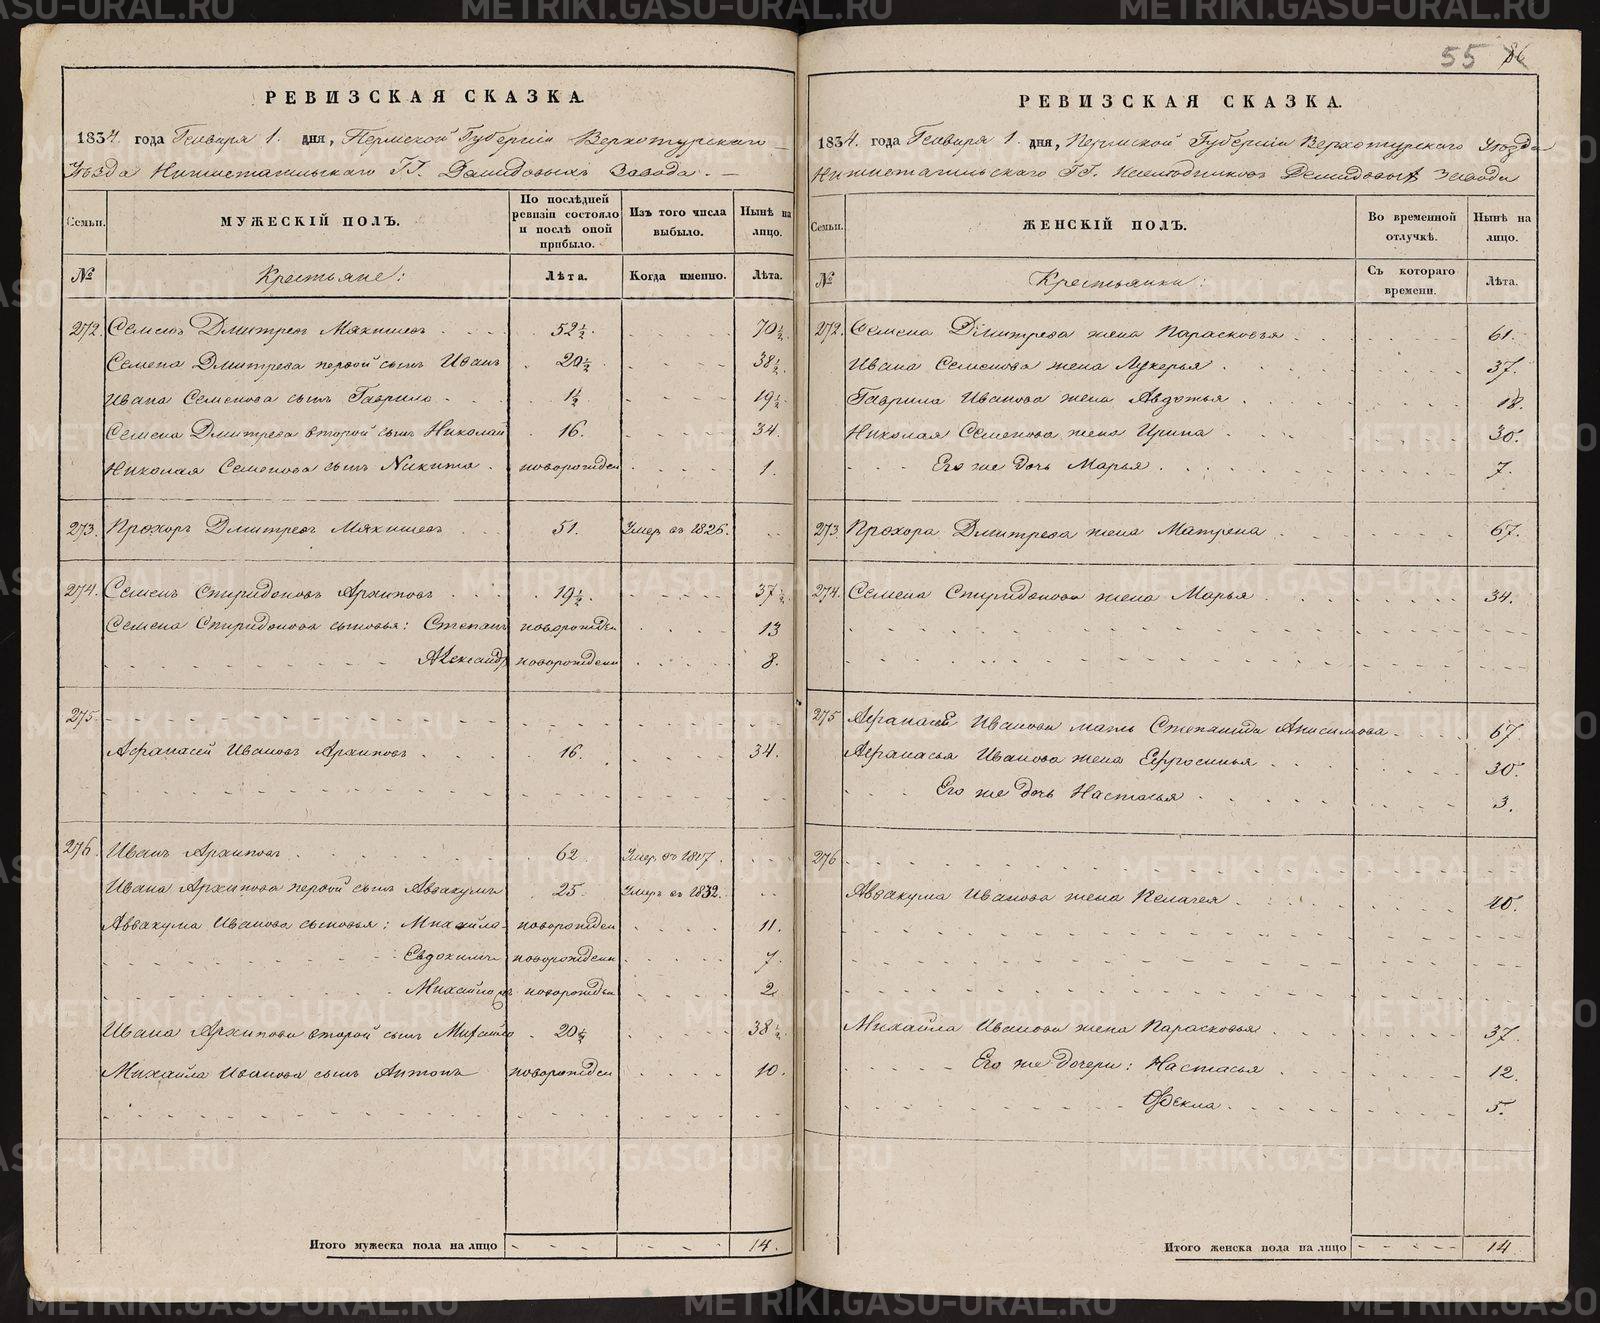 РЕВИЗСКАЯ СКАЗКА.
1834. года Генваря 1. дня, Пермской Губерніи Верхотурскаго
Уѣзда Нижнетагильскаго ГГ. Демидовыхъ Завода.
Семьи. МУЖЕСКІЙ ПОЛЪ. По послѣдней ревизіи состояло и послѣ оной прибыло. Изъ того числа выбыло. Нынѣ на лицо.
№ Крестьяне: Лѣта. Когда именно. Лѣта.
272. Семенъ Дмитревъ Мякишевъ 52½. 70½.
Семена Дмитрева первой сынъ Иванъ 20½ 38½
Ивана Семенова сынъ Гаврило 1½ 19½
Семена Дмитрева второй сынъ Николай 16. 34.
Николая Семенова сынъ Никита новорожден 1.
273. Прохоръ Дмитревъ Мякишевъ 51. Умеръ въ 1826.
274. Семенъ Спиридоновъ Архиповъ 19½. 37½
Семена Спиридонова сыновья: Степанъ новорожден 13
Александръ новорожденн 8.
275
Афанасей Ивановъ Архиповъ 16. 34.
276. Иванъ Архиповъ 62 Умер. въ 1817.
Ивана Архипова первой сынъ Аввакумъ 25. Умеръ въ 1832.
Аввакума Иванова сыновья: Михайла новорожден 11.
Евдокимъ новорожденн 7.
Михайло новорожден 2
Ивана Архипова второй сынъ Михайло 20½ 38½
Михайла Иванова сынъ Антонъ новорожден 10.
Итого мужеска пола на лицо 14.
55 86
РЕВИЗСКАЯ СКАЗКА.
1834. года Генваря 1. дня, Пермской Губерніи Верхотурскаго Уѣзда
Нижнетагильскаго ГГ. Наслѣдниковъ Демидовыхъ завода
Семьи. ЖЕНСКІЙ ПОЛЪ. Во временной отлучкѣ. Нынѣ на лицо.
№ Крестьянки: Съ котораго времени. Лѣта.
272. Семена Дмитрева жена Парасковья 61.
Ивана Семенова жена Лукерья 37.
Гаврила Иванова жена Авдотья 18.
Николая Семенова жена Ирина 30.
Его же дочь Марья 7.
273. Прохора Дмитрева жена Матрена 67.
274. Семена Спиридонова жена Марья 34.
275 Афанасей Иванова мать Степанида Анисимова 67
Афанасья Иванова жена Ефросинья 30.
Его же дочь Настасья 3.
276
Аввакума Иванова жена Пелагея 40.
Михайла Иванова жена Парасковья 37.
Его же дочери: Настасья 12.
Фекла 5.
Итого женска пола на лицо 14
METRIKI.GASO-URAL.RU